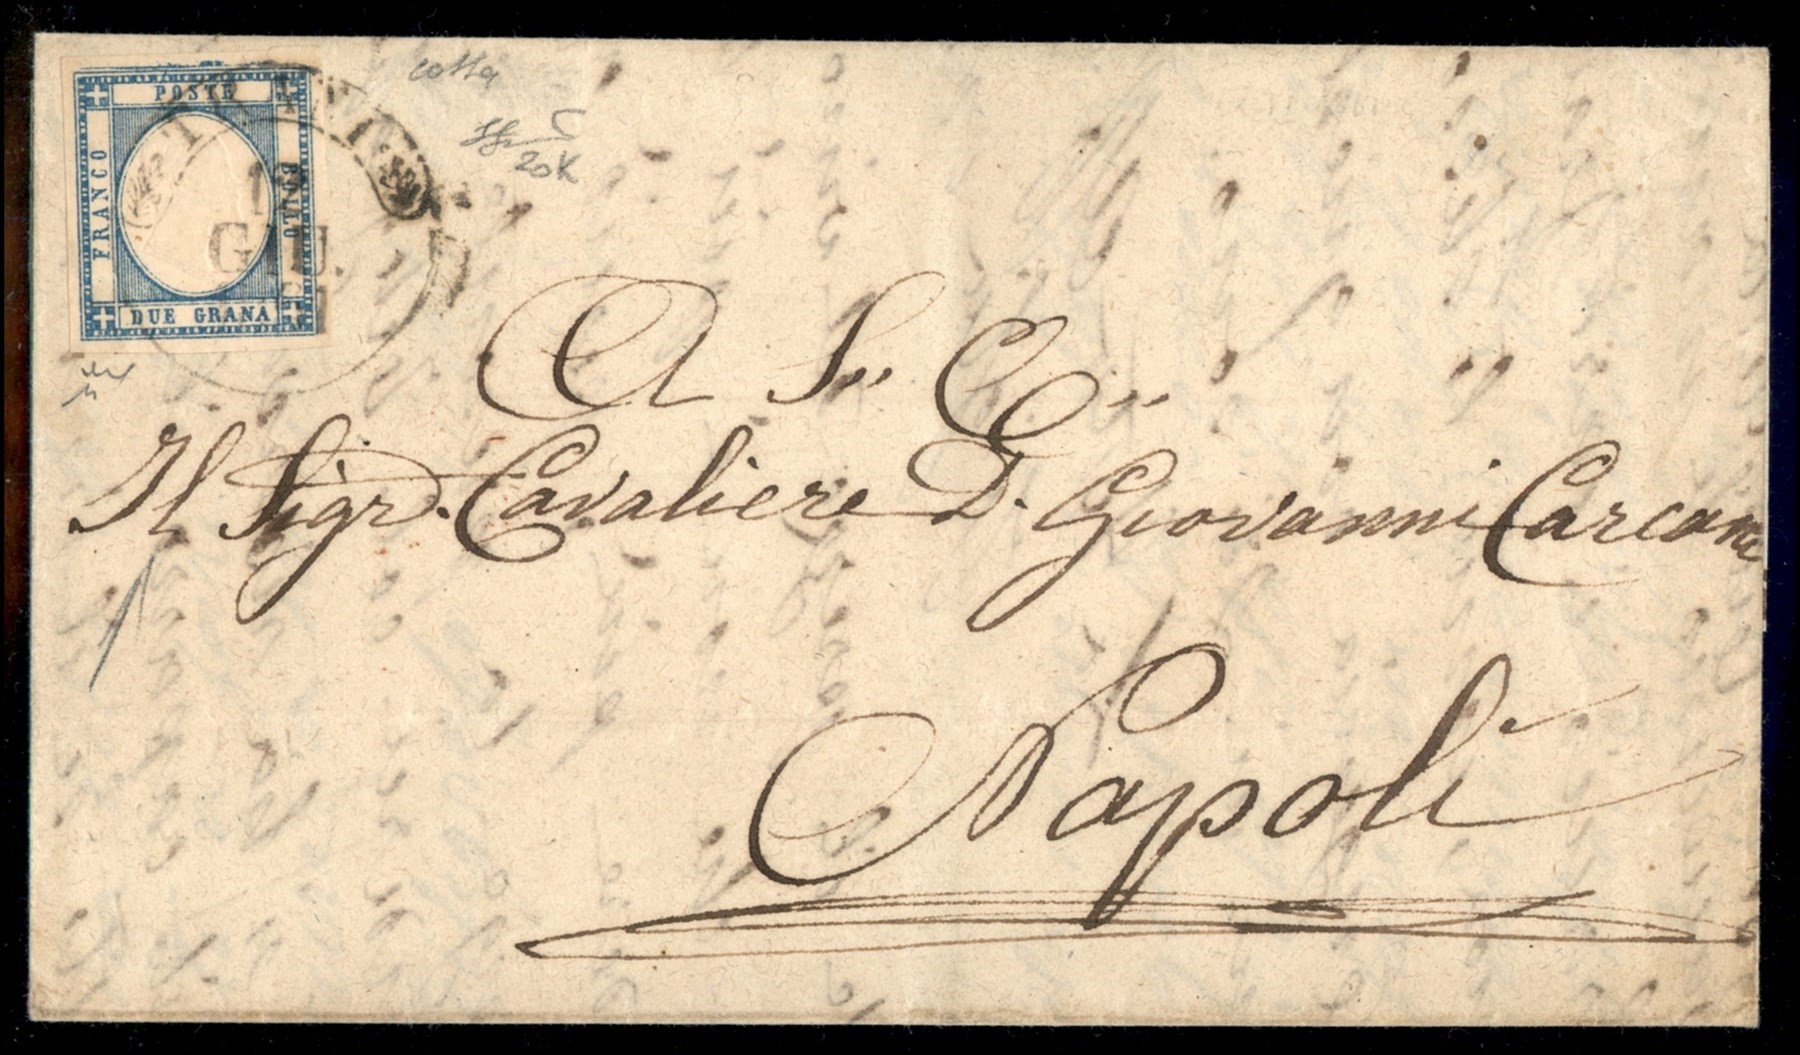 POSTE
FRANCO
BOLLO
DUE GRANA
TRANI
GIU.
cotta
20K
A S. E.
Il Sigr. Cavaliere D. Giovanni Carcano
Napoli